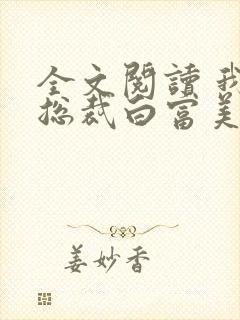 全文閱讀 我
总裁白富美
姜妙香